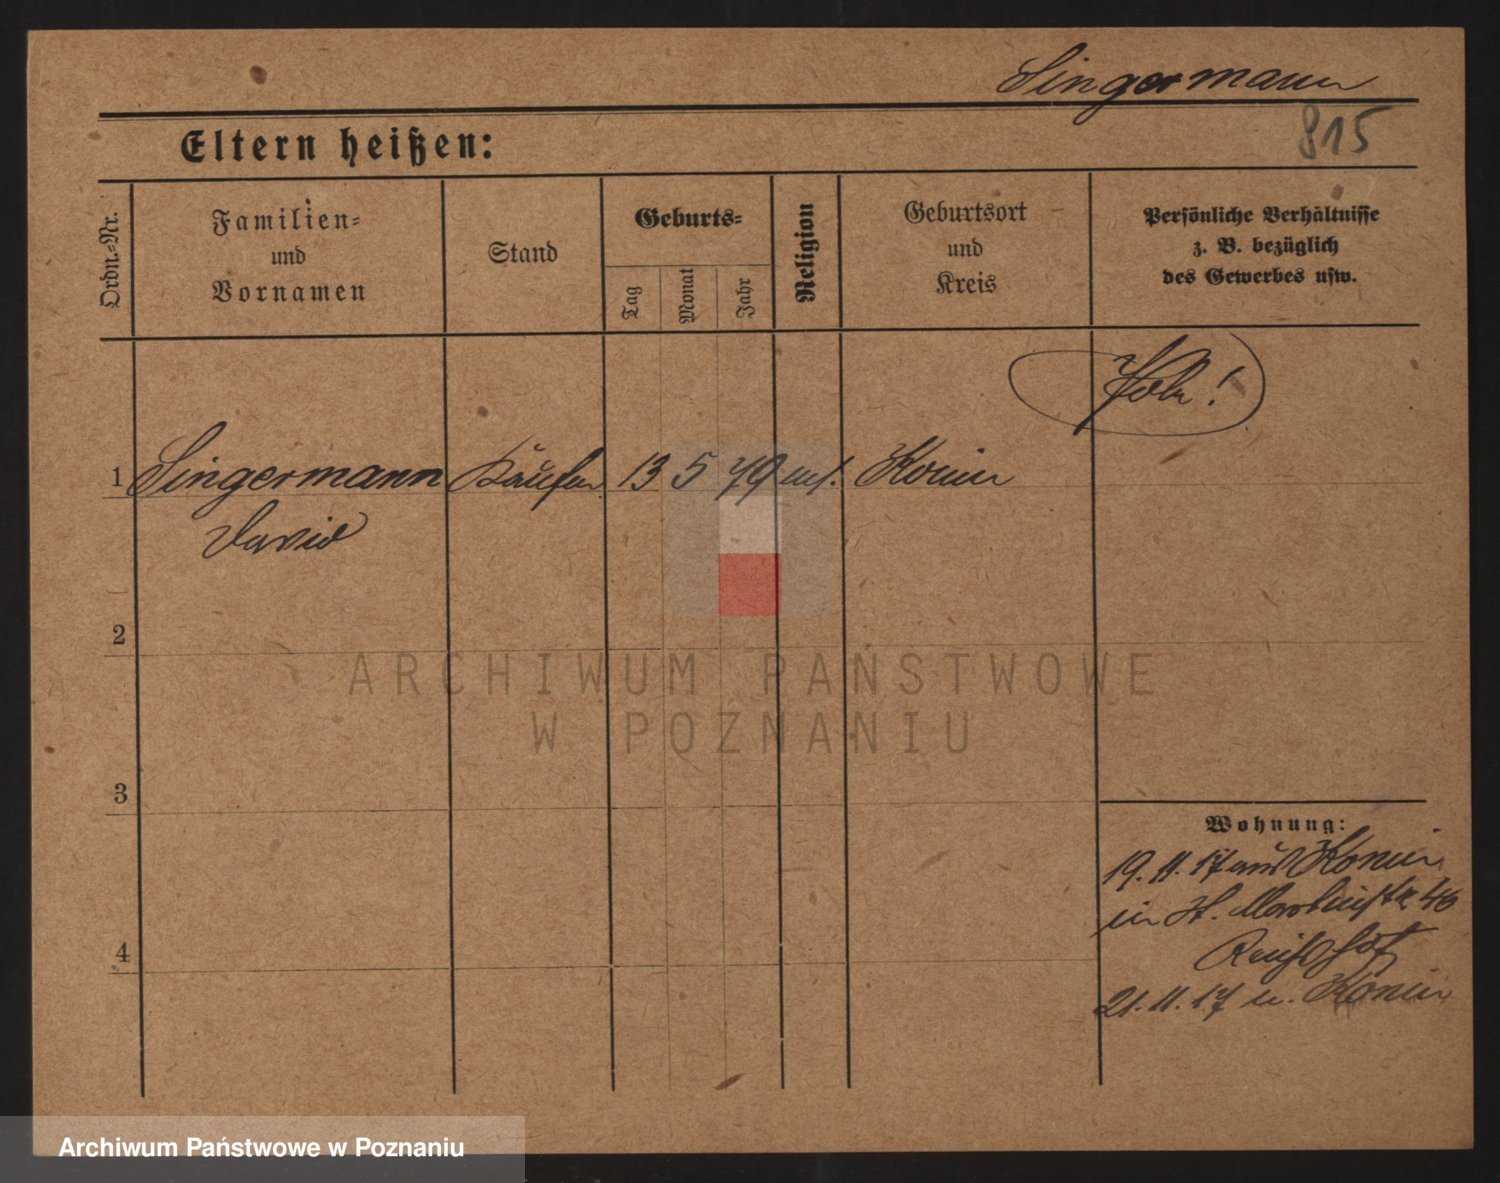 Singermann
Eltern heißen:
815
Ordn.-Nr.
Familien-
und
Vornamen
Stand
Geburts-
Tag
Monat
Jahr
Religion
Geburtsort
und
Kreis
Persönliche Verhältnisse
z. B. bezüglich
des Gewerbes usw.
1 Singermann 13 5 79 Konin
David
2
ARCHIWUM PAŃSTWOWE
W POZNANIU
3
Wohnung:
19.11.17 aus Konin
in St. Martinstr 40
4
21.11.17 n. Konin
Archiwum Państwowe w Poznaniu